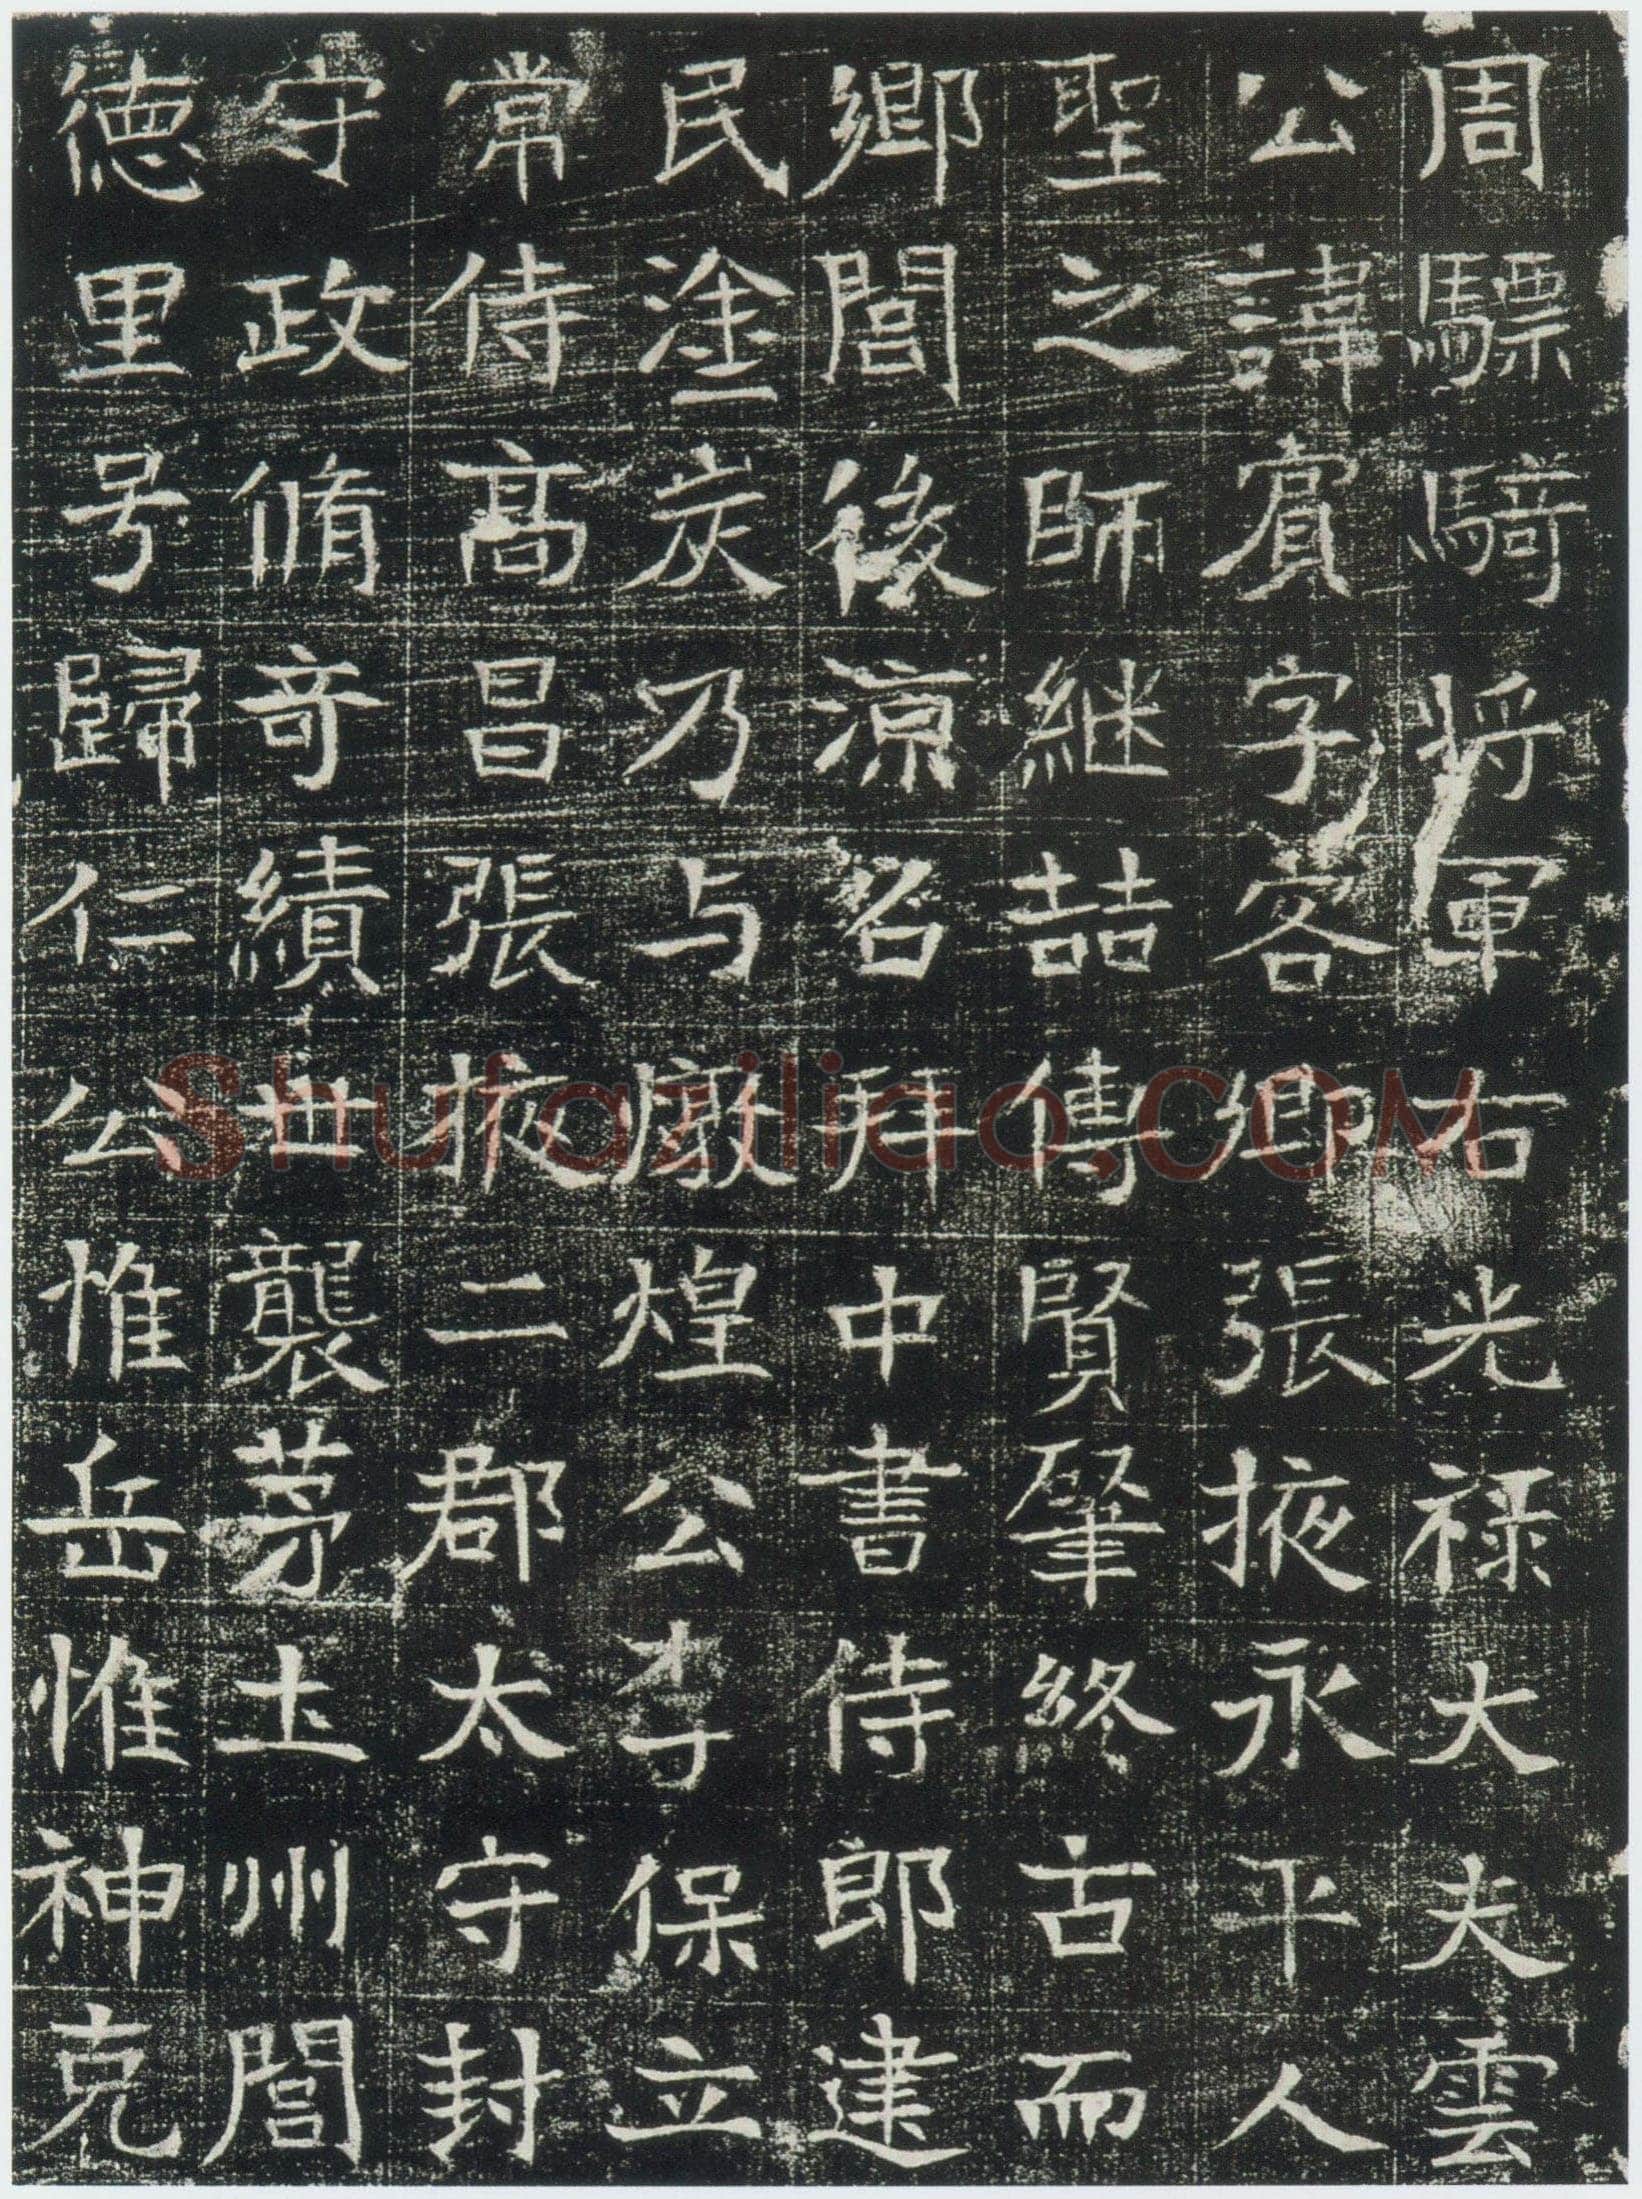 周驃騎將軍右光祿大夫雲
公諱賓字客卿張掖永平人
聖之師継喆傳賢肇終古而
鄉閭後涼召拜中書侍郎建
民塗炭乃与燉煌公李保立
常侍高昌張掖二郡太守封
守政脩竒績世襲茅土州閭
德里号歸仁公惟岳惟神克
Shufaziliao.COM